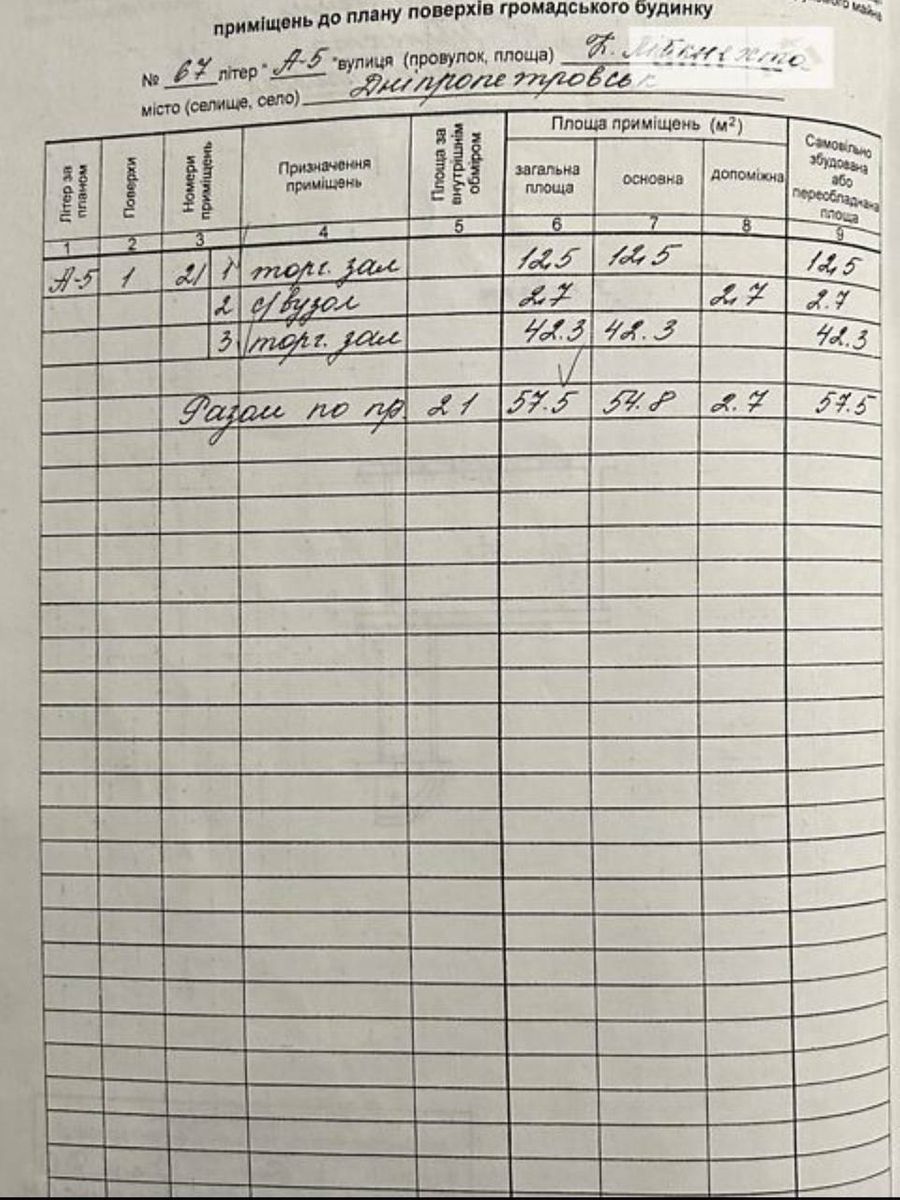 ного майна
приміщень до плану поверхів громадського будинку
№ 67 літер " А-5 " вулиця (провулок, площа) К. Лібкнехта
місто (селище, село) Дніпропетровськ
Літер за планом Поверхи Номери приміщень Призначення приміщень Площа за внутрішнім обміром Площа приміщень (м²) Самовільно збудована або переобладнана площа
загальна площа основна допоміжна
1 2 3 4 5 6 7 8 9
А-5 1 21 1 торг. зал 12,5 12,5 12,5
2 с/вузол 2,7 2,7 2.7
3 торг. зал 42.3 42.3 42.3
Разом по пр 21 57.5 54.8 2.7 57.5